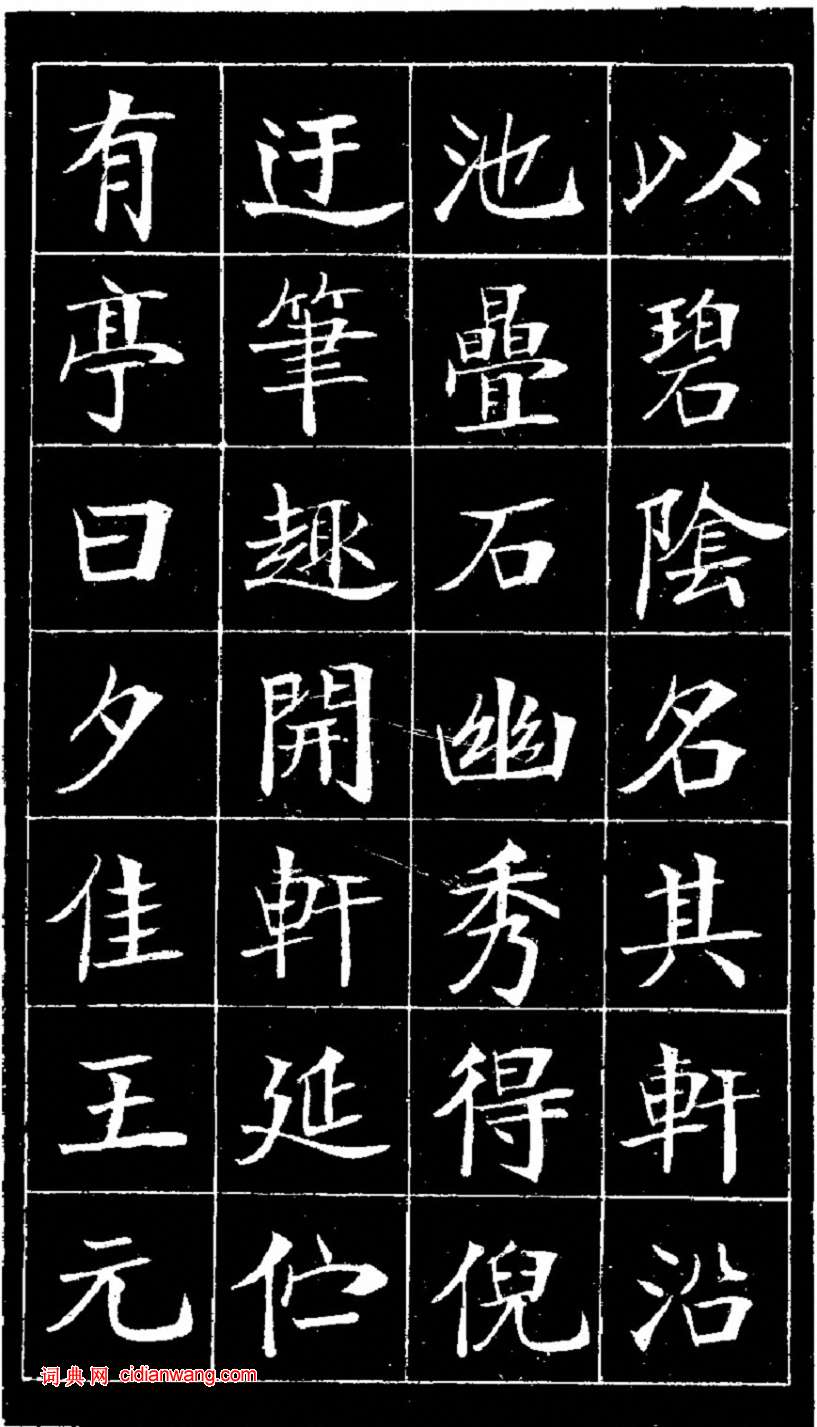 以碧陰名其軒沿
池疊石幽秀得倪
迂筆趣開軒延伫
有亭曰夕佳王元
词典网 cidianwang.com